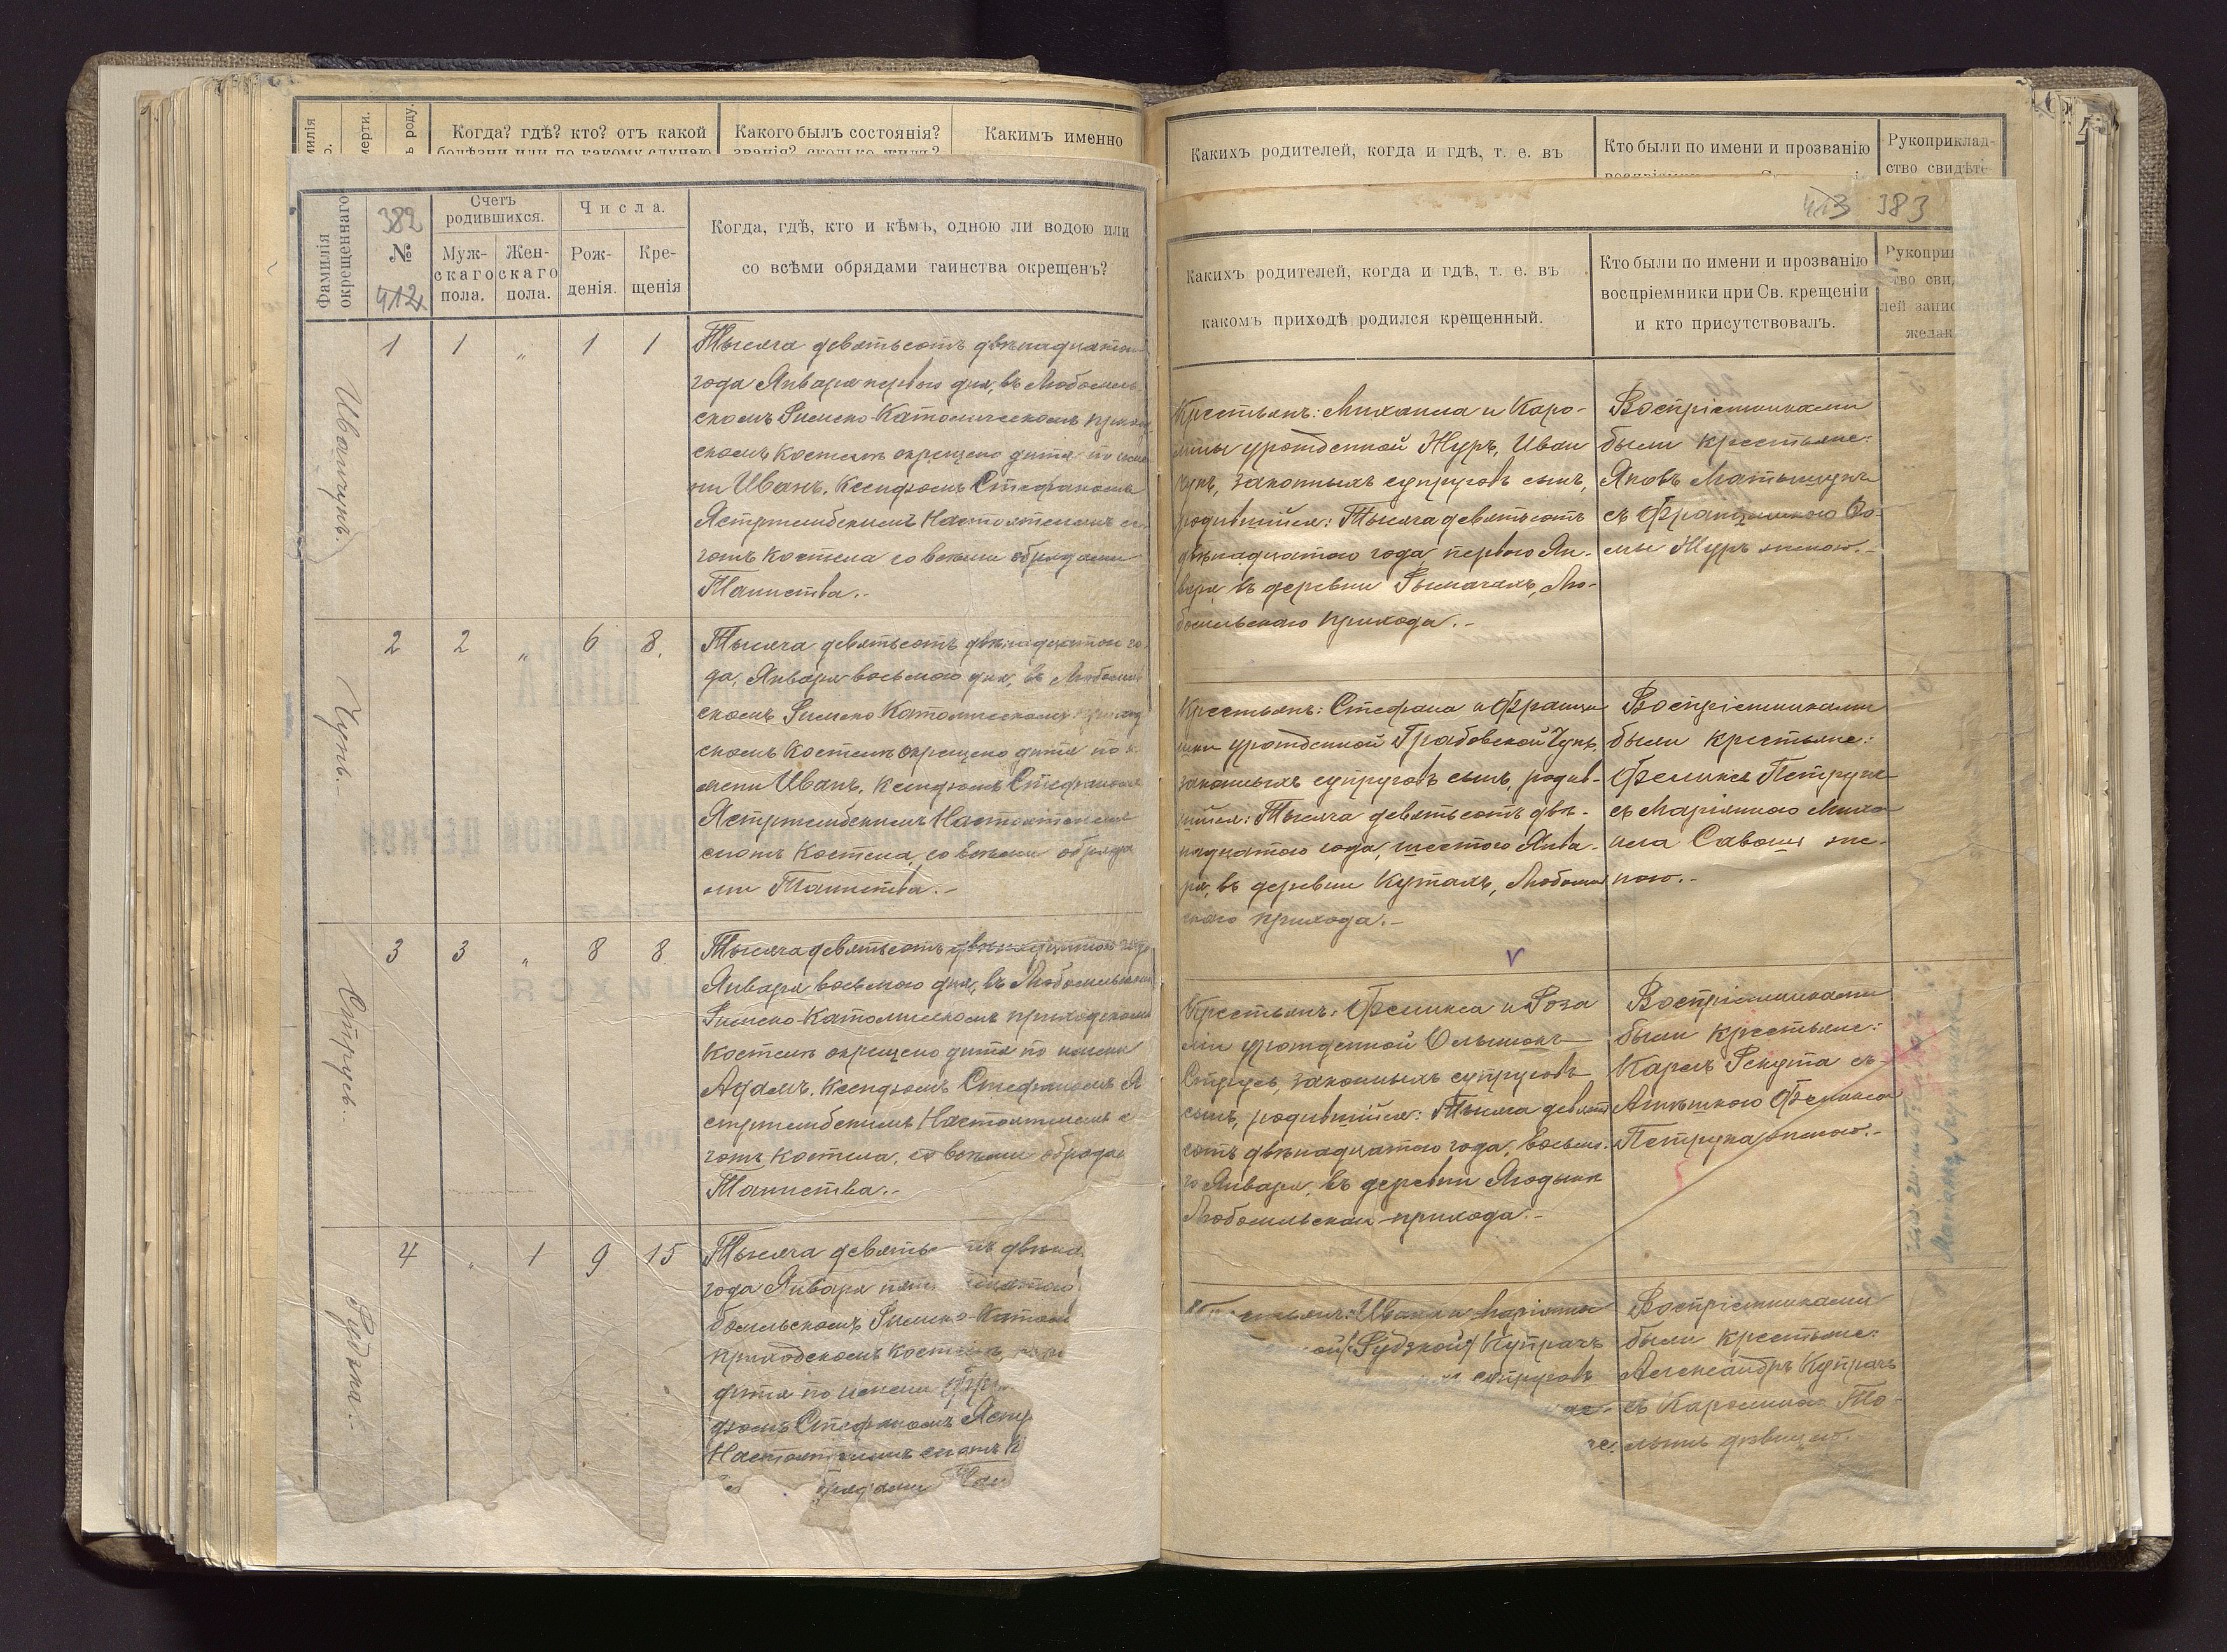 Когда? гдѣ? кто? отъ какой
Какого былъ состоянія?
Какимъ именно
382
412
Фамилія окрещеннаго
№
Счетъ родившихся.
Муж-скаго пола.
Жен-скаго пола.
Числа.
Рож-денія.
Кре-щенія
Когда, гдѣ, кто и кѣмъ, одною ли водою или
со всѣми обрядами таинства окрещенъ?
Иванчукъ.
1 1 „ 1 1
Тысяча девятьсотъ двѣнадцатого
года Января перваго дня, въ Любомль
скомъ Римско-Католическомъ приход
скомъ Костелѣ окрещено дитя по име
ни Иванъ, Ксендзомъ Стефаномъ
Ястржембскимъ Настоятелемъ се
готъ Костела со всѣми обрядами
Таинства.-
Чупъ.
2 2 „ 6 8.
Тысяча девятьсотъ двѣнадцатого го
да, Января восьмого дня, въ Любомль
скомъ Римско Католическомъ приход
скомъ Костелѣ окрещено дитя по и
мени Иванъ, Ксендзомъ Стефаномъ
Ястржембскимъ Настоятелемъ
сеготъ Костела, со всѣми обряда
ми Таинства.-
Струсь.
3 3 „ 8 8.
Тысяча девятьсотъ двѣнадцатого года
Января восьмого дня, въ Любомльскомъ
Римско-Католическомъ приходскомъ
Костелѣ окрещено дитя по имени
Адамъ, Ксендзомъ Стефаномъ Я
стржембскимъ Настоятелемъ се
готъ Костела, со всѣми обрядам
Таинства.-
Рудзка.
4 „ 1 9 15
Тысяча девять тъ двѣна
года Января пят
бомльскомъ Римско-Катол
приходскомъ Костелѣ
дитя по имени
дзомъ Стефаномъ Ястр
Настоятелемъ сеготъ К
брядами Таи
Каихъ родителей, когда и гдѣ, т. е. въ
Кто были по имени и прозванію
Рукоприклад-
ство свидѣте
413 383
Какихъ родителей, когда и гдѣ, т. е. въ
какомъ приходѣ родился крещенный.
Кто были по имени и прозванію
воспріемники при Св. крещеніи
и кто присутствовалъ.
Рукоприк
тво сви
лей запис
желан
Крестьянъ: Михаила и Каро-
лины урожденной Журъ, Иван
чукъ, законныхъ супруговъ сынъ,
родившійся: Тысяча девятьсотъ
двѣнадцатого года перваго Ян-
варя въ деревни Рымачахъ, Лю-
бомльскаго прихода.-
Воспріемниками
были крестьяне:
Яковъ Матыщукъ
съ Францишкою Фо-
мы Журъ женою.-
Крестьянъ: Стефана и Францы
шки урожденной Грабовской Чупъ,
законныхъ супруговъ сынъ, родив-
шійся: Тысяча девятьсотъ двѣ-
надцатого года, шестого Янва-
ря, въ деревни Кутахъ, Любомль
скаго прихода.-
Воспріемниками
были крестьяне:
Феликсъ Петрука
съ Маріянною Миха
ила Савошъ же-
ною.-
v
Крестьянъ: Феликса и Роза
ліи урожденной Ольшокъ
Струсь, законныхъ супруговъ
сынъ, родившійся: Тысяча девять
сотъ двѣнадцатого года, восьмо-
го Января, въ деревни Ягодынъ
Любомльскаго прихода.-
Воспріемниками
были крестьяне:
Карлъ Рекута съ
Агнешкою Феликса
Петрука женою.-
стьянъ: Ивана и Маріянны
ой Рудзкой Купрачъ
супруговъ
Воспріемниками
были крестьяне:
Александръ Купрачъ
съ Каролиною То-
дѣвицею.-